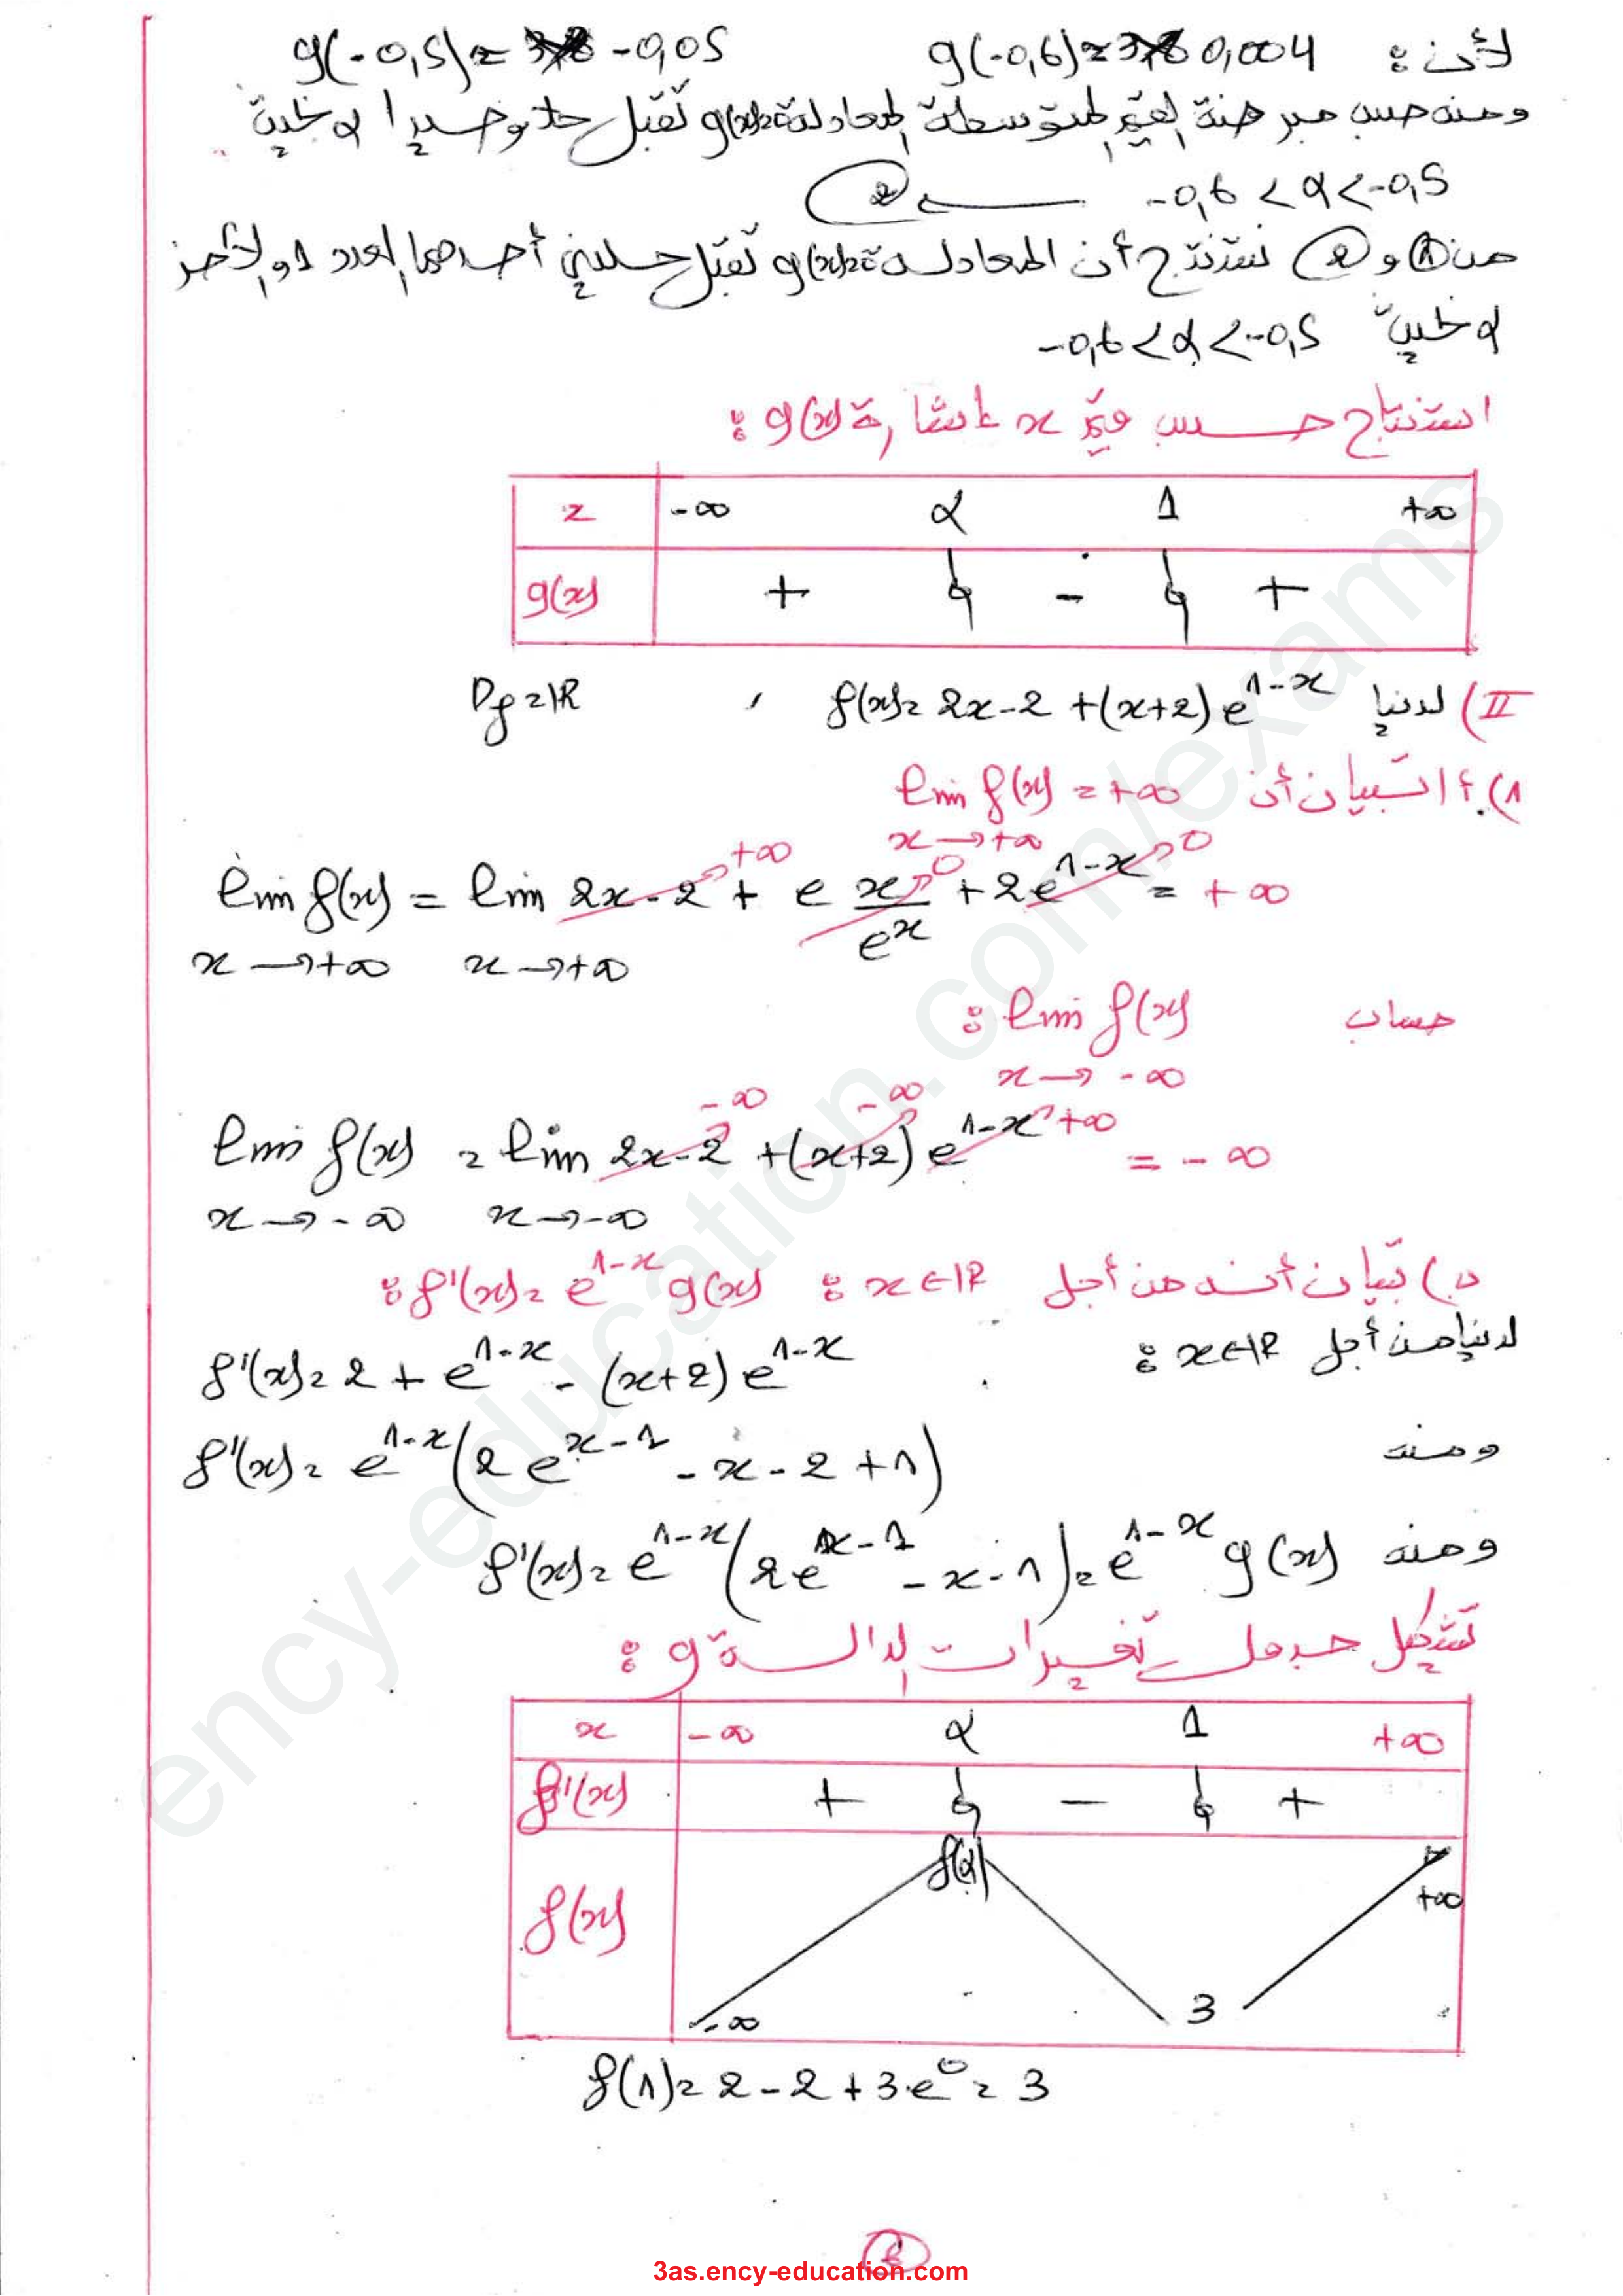 لأن : g(-0,6) ≈ 0,004 g(-0,5) ≈ -0,05
ومنه حسب مبرهنة القيم المتوسطة المعادلة g(x)=0 تقبل حلا وحيدا α حيث
-0,6 < α < -0,5 ــــ ②
من ① و ② نستنتج أن المعادلة g(x)=0 تقبل حلين أحدهما العدد 1 والآخر
α حيث -0,6 < α < -0,5
استنتاج حسب قيم x إشارة g(x) :
x -∞ α 1 +∞
g(x) + 0 - 0 +
II) لدينا f(x) = 2x-2+(x+2)e^{1-x} , Df = IR
1). أ) تبيان أن lim f(x) = +∞
x→+∞
lim f(x) = lim 2x-2 + e x/e^x + 2e^{1-x} = +∞
x→+∞ x→+∞
+∞ 0 0
حساب lim f(x) :
x→-∞
-∞ -∞ +∞
lim f(x) = lim 2x-2 + (x+2) e^{1-x} = -∞
x→-∞ x→-∞
ب) تبيان أنه من أجل x∈IR : f'(x) = e^{1-x} g(x) :
لدينا من أجل x∈IR :
f'(x) = 2 + e^{1-x} - (x+2) e^{1-x}
ومنه f'(x) = e^{1-x} (2e^{x-1} - x - 2 + 1)
ومنه f'(x) = e^{1-x} (2e^{x-1} - x - 1) = e^{1-x} g(x)
تشكيل جدول تغيرات الدالة g :
x -∞ α 1 +∞
f'(x) + 0 - 0 +
f(x) -∞ f(α) 3 +∞
f(1) = 2-2+3·e^0 = 3
3as.ency-education.com
ency-education.com/exams